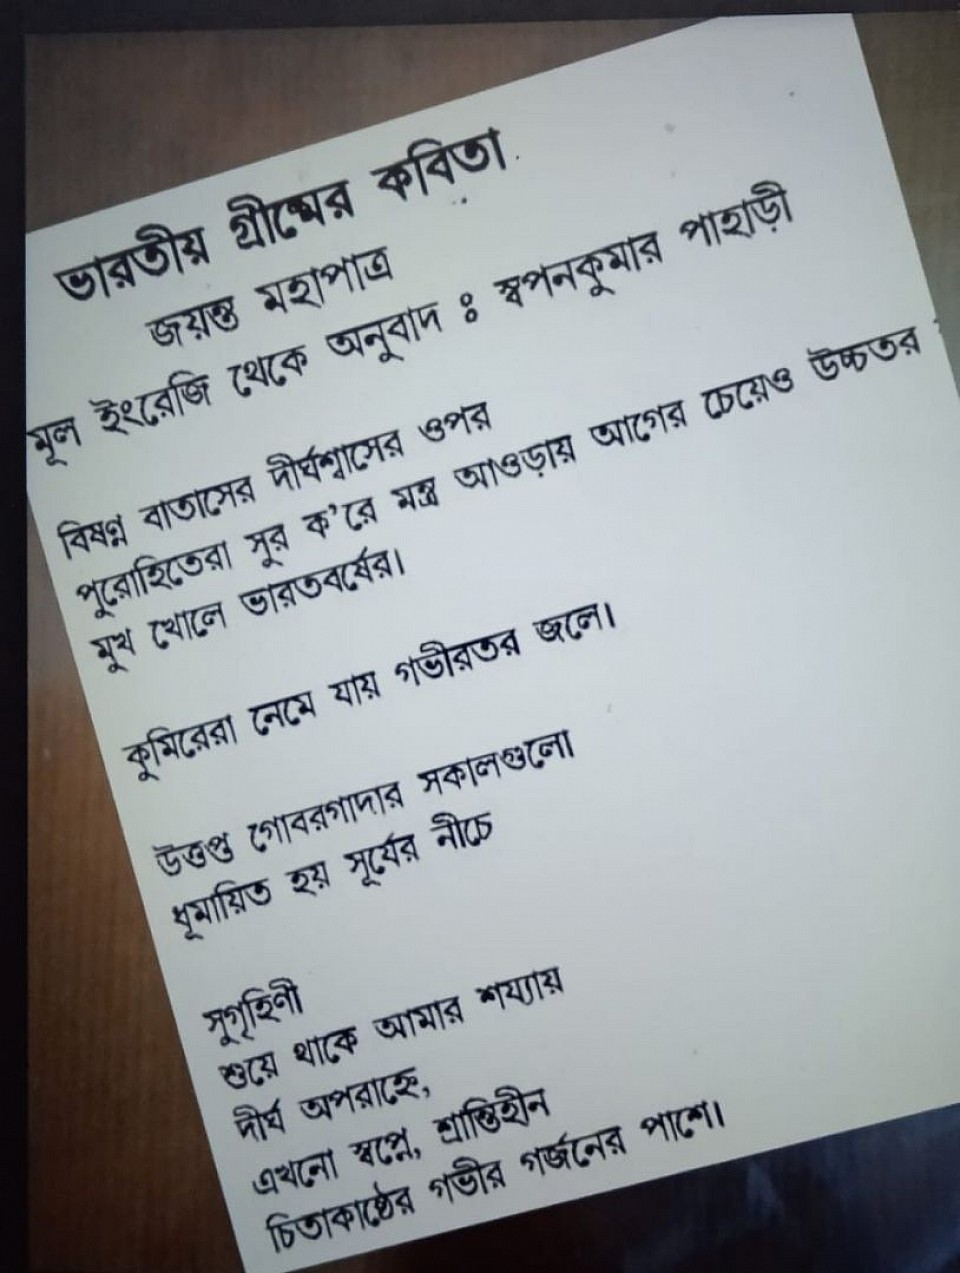 ভারতীয় গ্রীষ্মের কবিতা
জয়ন্ত মহাপাত্র
মূল ইংরেজি থেকে অনুবাদ : স্বপনকুমার পাহাড়ী
বিষণ্ণ বাতাসের দীর্ঘশ্বাসের ওপর
পুরোহিতেরা সুর ক'রে মন্ত্র আওড়ায় আগের চেয়েও উচ্চতর
মুখ খোলে ভারতবর্ষের।
কুমিরেরা নেমে যায় গভীরতর জলে।
উত্তপ্ত গোবরগাদার সকালগুলো
ধূমায়িত হয় সূর্যের নীচে
সুগৃহিণী
শুয়ে থাকে আমার শয্যায়
দীর্ঘ অপরাহ্নে,
এখনো স্বপ্নে, শ্রান্তিহীন
চিতাকাষ্ঠের গভীর গর্জনের পাশে।